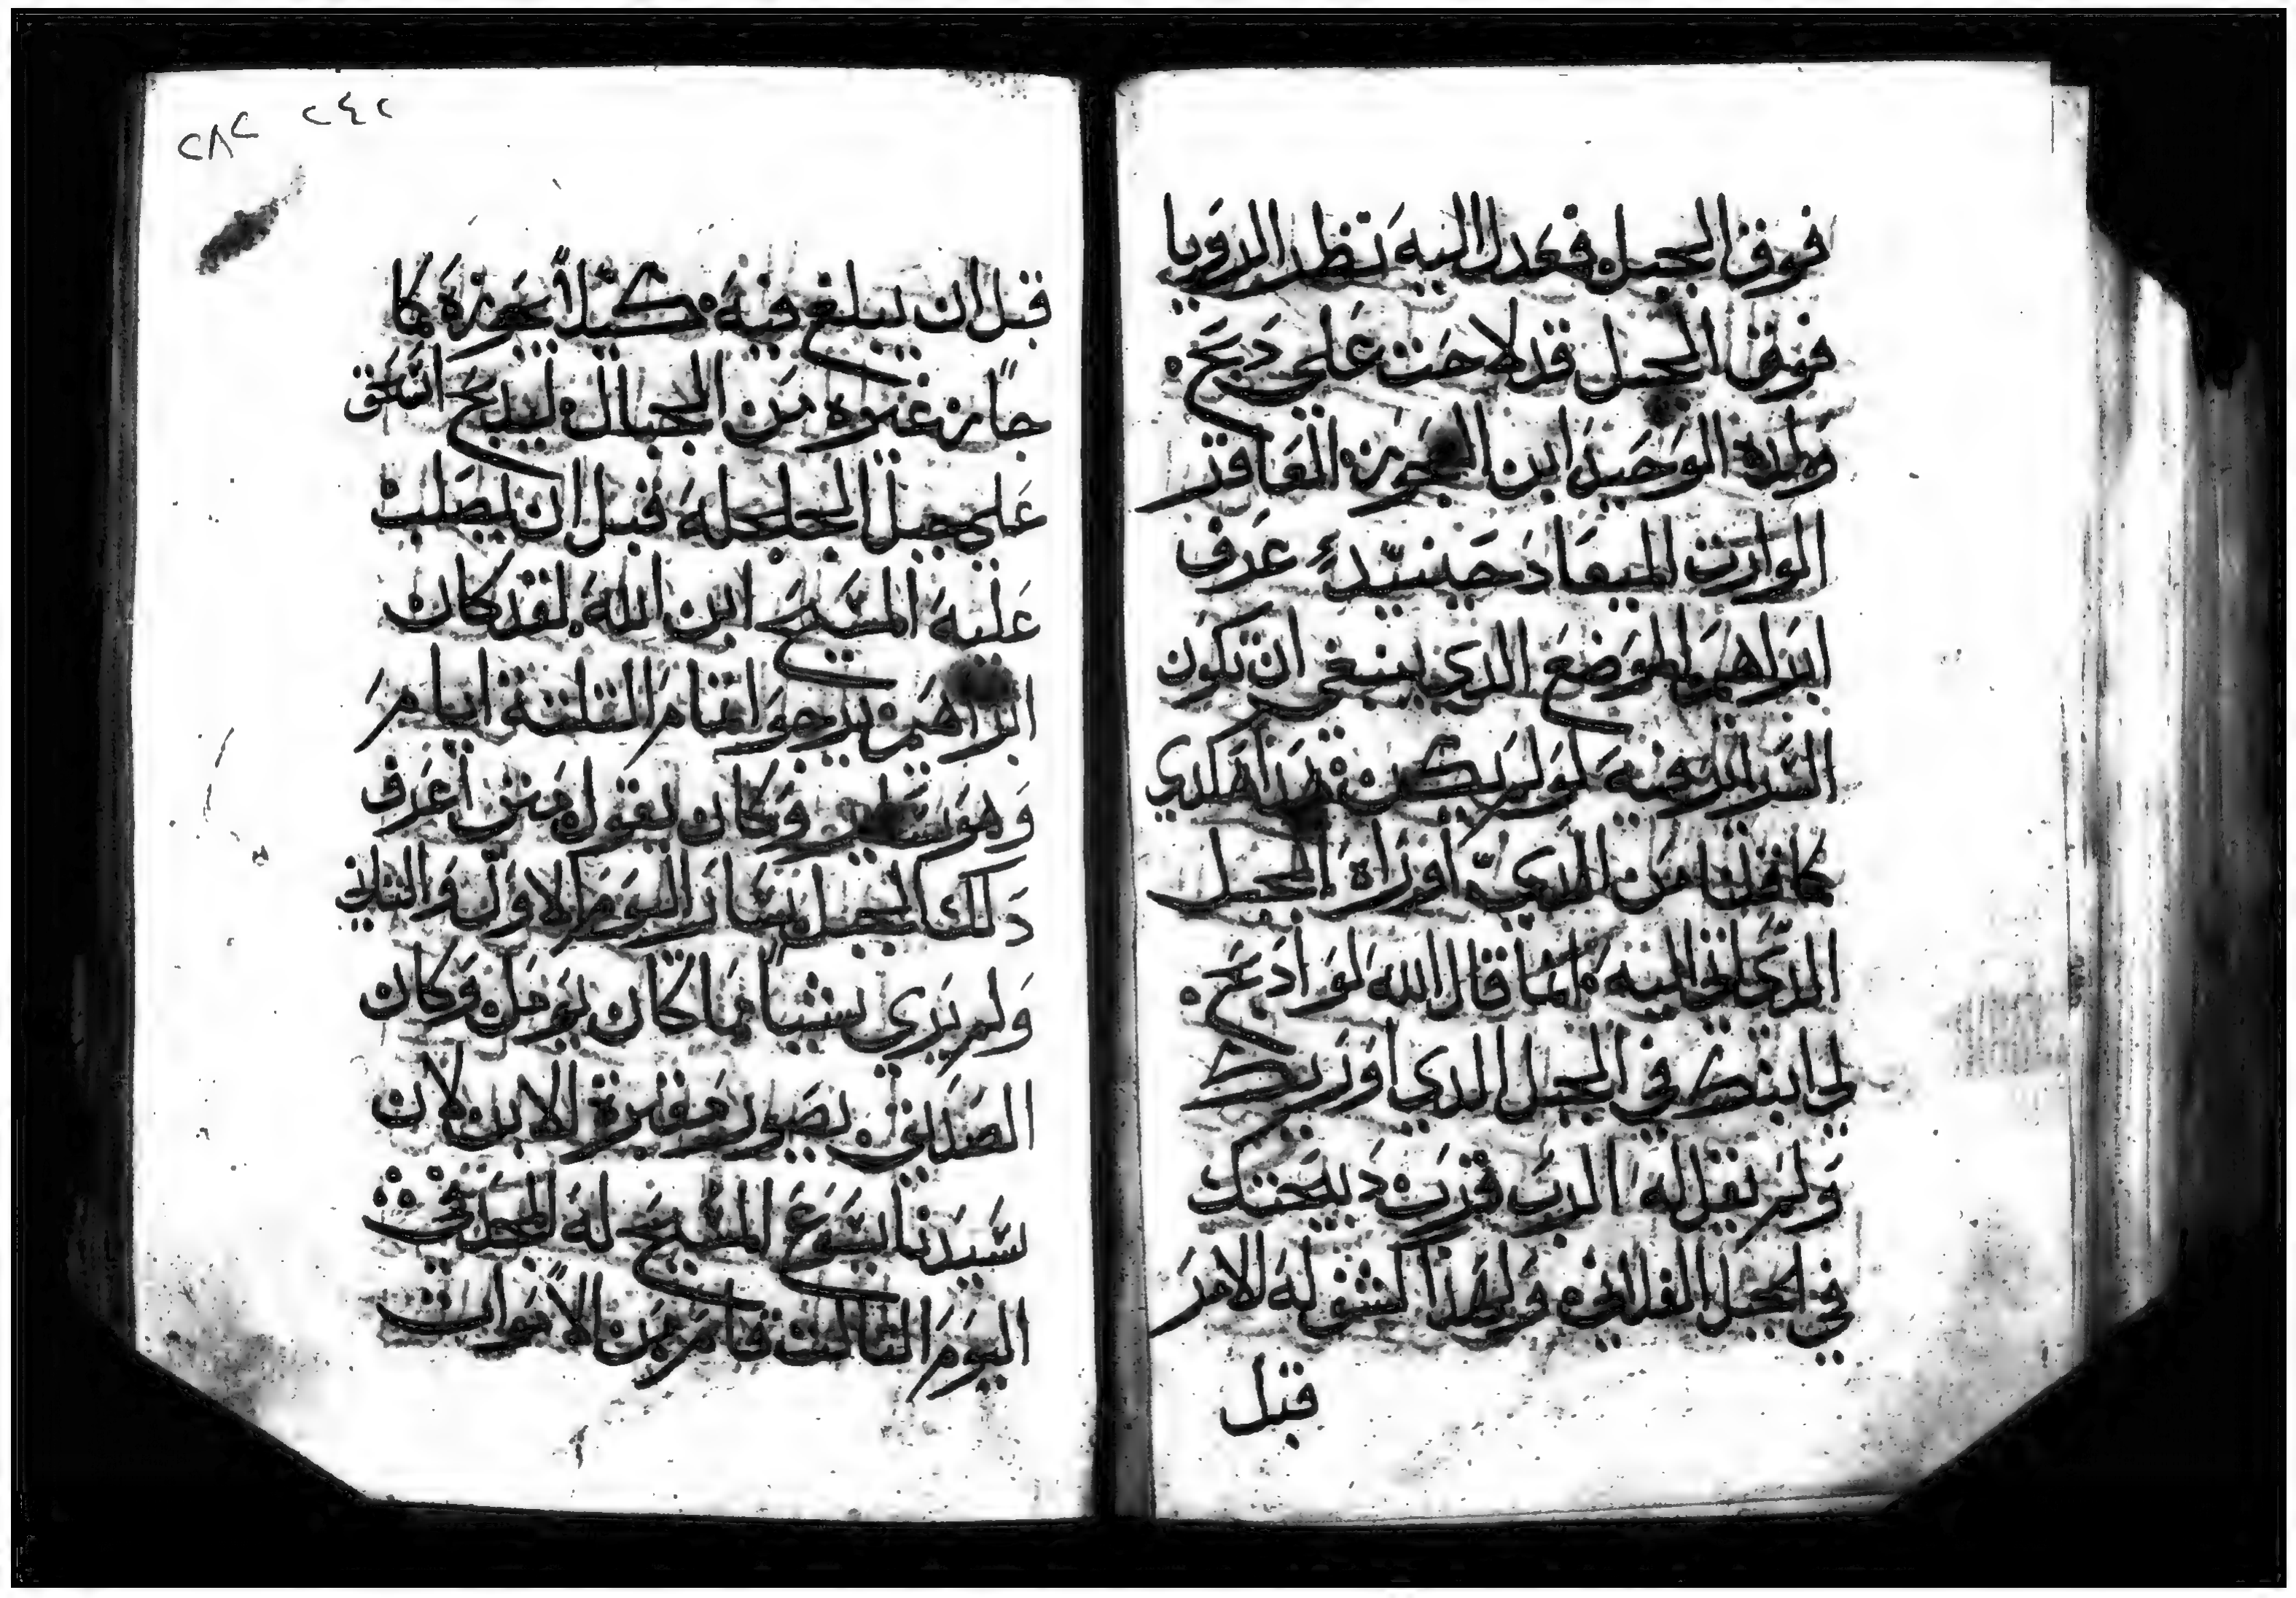 فوق الجبل فعدل اليه تظر الرويا
فوق الجبل قد لاحت على دبح
ولده الوحيد ابن العجوزه العاقر
الوارت الميعاد حينيدٍ عرف
ابراهيم الموضع الدي ينبغي ان تكون
السر فيه لو لم يكن هكدي
كما قلنا من الدي اوراه الجبل
الدي اتي اليه كلما قال الله لو ادبح
لي ابنك في الجبل الدي اوريك
ولم يقل له الرب قرب دبيحتك
في الجبل الفلاني ولهدا كشف له الامر
قبل
٢٨٢ ٢٤٢
قبل ان يبلغ فيه كيلا يجوزه كما
جاز غيره من الجبال ليدبح اسحق
على جبل الجلجله قبل ان يصلب
عليه المسيح ابن الله لقد كان
ابراهيم يرجو لتمام التلتة ايام
وهو وكان يقول متى اعرف
دلك الجبل سار اليوم الاول والتاني
ولم يرى شيا مما كان يومل وكان
الصديق يصور مقبرة الابن لان
سيدنا يسوع المسيح له المجد في
اليوم التالت قام من الاموات